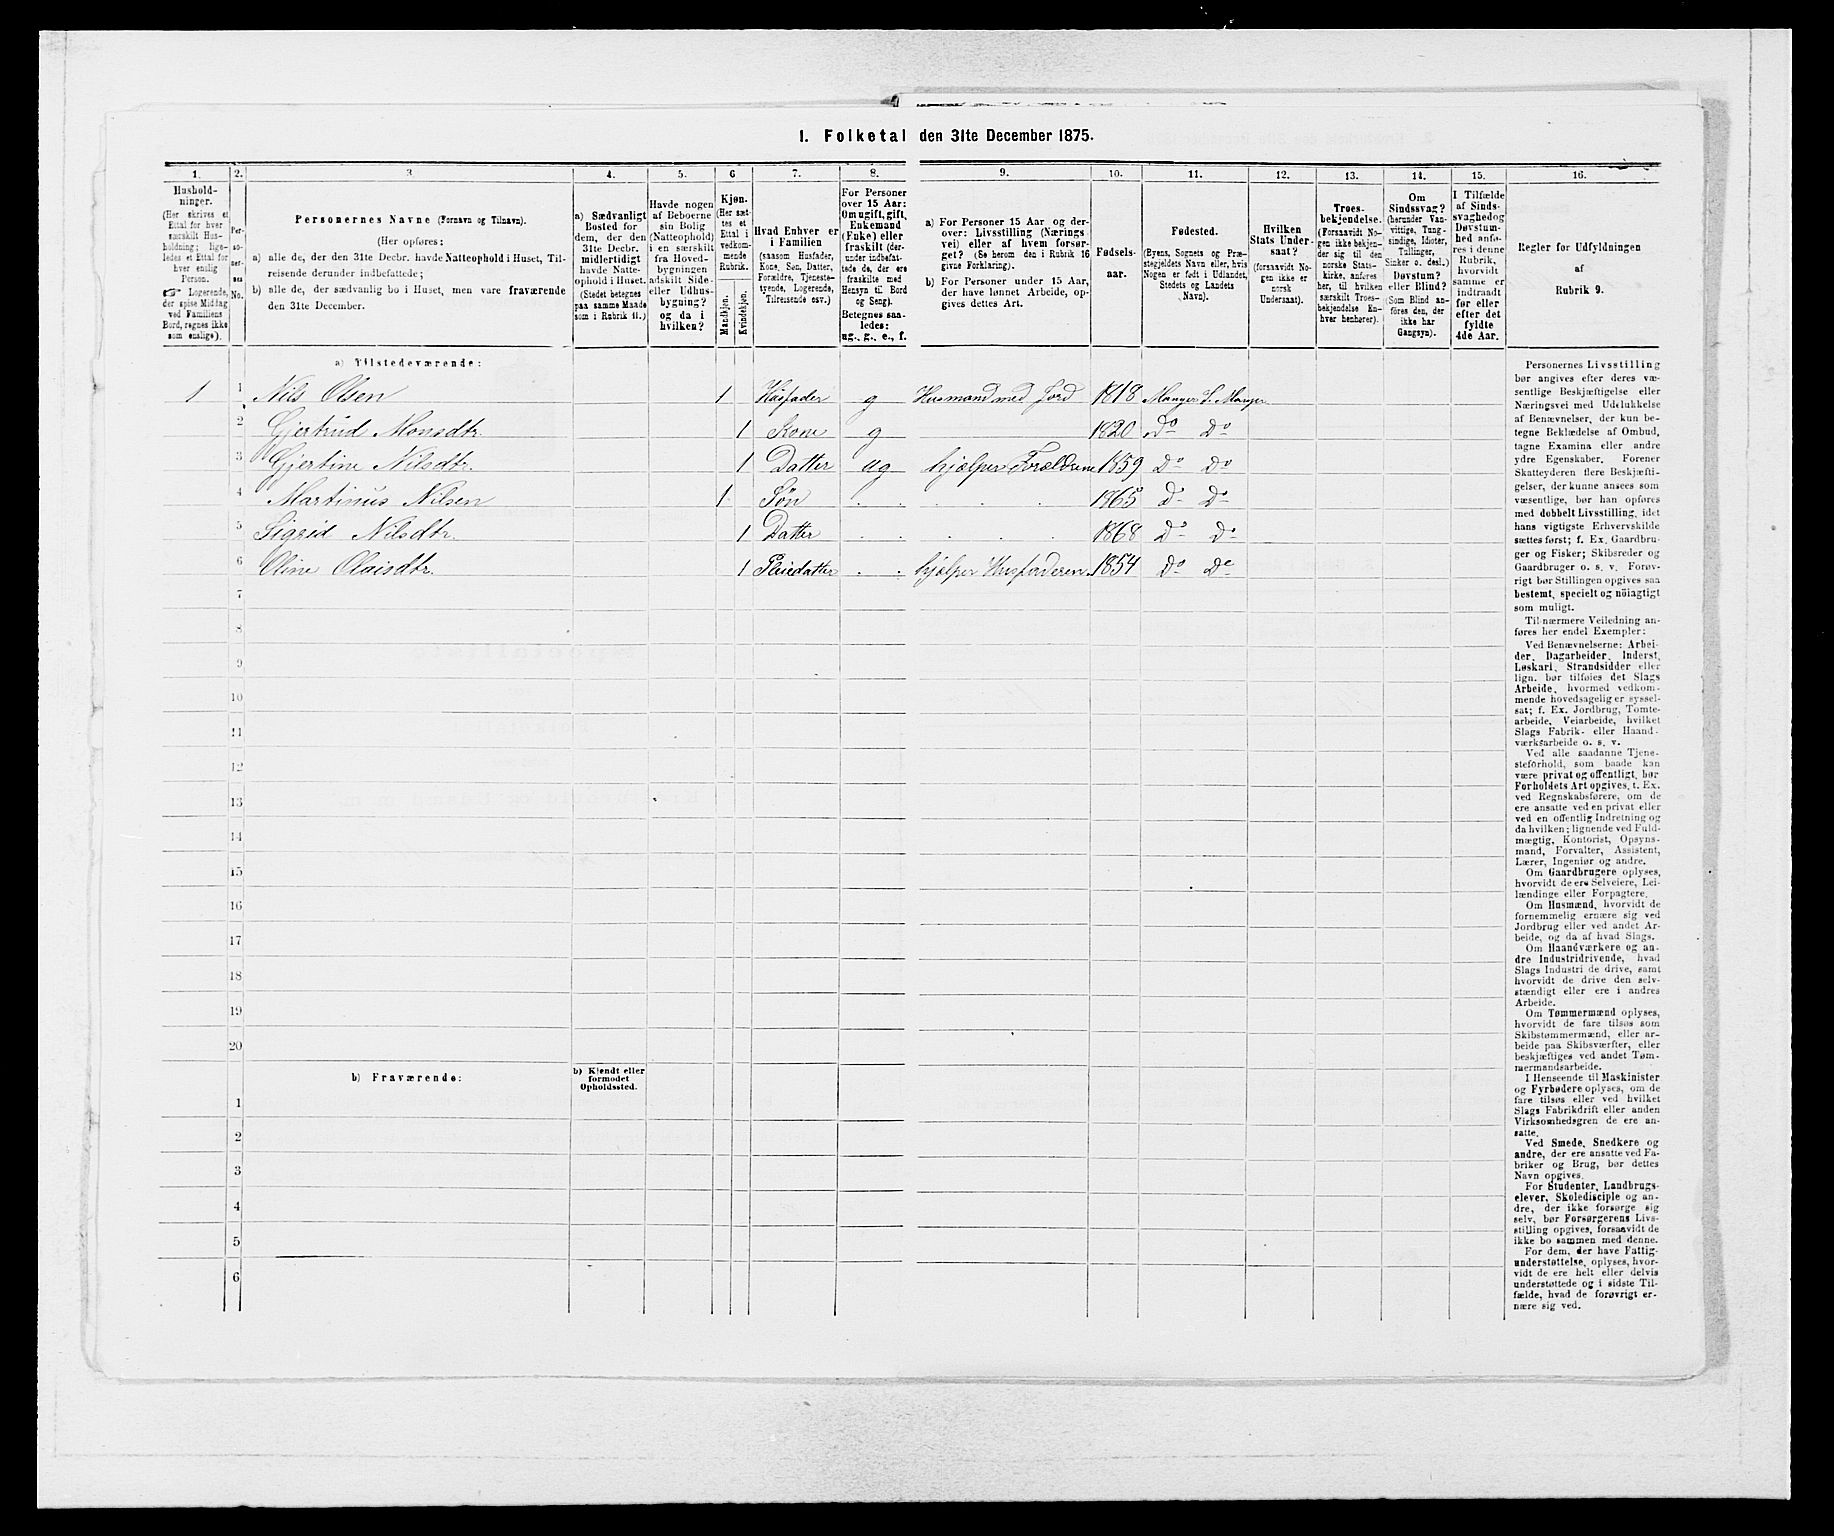 1. Folketal den 31te December 1875.
1. 2. 3. 4. 5. 6 7. 8. 9. 10. 11. 12. 13. 14. 15. 16.
Hushold-
ninger.
(Her skrives et
Ettal for hver
særskilt Hus-
holdning; lige-
ledes et Ettal for
hver enslig
Person.
☞ Logerende,
der spise Middag
ved Familiens
Bord, regnes ikke
som enslige).
Per-
so-
ner-
nes
No.
Personernes Navne (Fornavn og Tilnavn).
(Her opføres:
a) alle de, der den 31te Decbr. havde Natteophold i Huset, Til-
reisende derunder indbefattede;
b) alle de, der sædvanlig bo i Huset, men vare fraværende
den 31te December.
a) Sædvanligt
Bosted for
dem, der den
31te Decbr.
midlertidigt
havde Natte-
ophold i Huset.
(Stedet betegnes
paa samme Maade
som i Rubrik 11.)
Havde nogen
af Beboerne
sin Bolig
(Natteophold)
i en særskilt
fra Hoved-
bygningen
adskilt Side-
eller Udhus-
bygning?
og da i
hvilken?
Kjøn.
(Her sæt-
tes et
Ettal i
vedkom-
mende
Rubrik.
Mandkjøn.
Kvindekjøn.
Hvad Enhver er
i Familien
(saasom Husfader,
Kone, Søn, Datter,
Forældre, Tjeneste-
tyende, Logerende,
Tilreisende osv.)
For Personer
over 15 Aar:
Om ugift, gift,
Enkemand
(Enke) eller
fraskilt (der-
under indbefat-
tede de, der ere
fraskilte med
Hensyn til Bord
og Seng).
Betegnes saa-
ledes:
ug., g., e., f.
a) For Personer 15 Aar og der-
over: Livsstilling (Nærings
vei) eller af hvem forsør-
get? (Se herom den i Rubrik 16
givne Forklaring).
b) For Personer under 15 Aar,
der have lønnet Arbeide, op-
gives dettes Art.
Fødsels-
aar.
Fødested.
(Byens, Sognets og Præ-
stegjeldets Navn eller, hvis
Nogen er født i Udlandet,
Stedets og Landets
Navn).
Hvilken
Stats Under-
saat?
(forsaavidt No-
gen ikke er
norsk
Undersaat).
Troes-
bekjendelse.
(Forsaavidt No-
gen ikke bekjen-
der sig til den
norske Stats-
kirke, anføres
her, til hvilken
særskilt Troes-
bekjendelse En-
hver henhører).
Om
Sindssvag?
(herunder Van-
vittige, Tung-
sindige, Idioter,
Tullinger,
Sinker o. desl.).
Døvstum?
eller Blind?
(Som Blind an-
føres den, der
ikke har
Gangsyn).
I Tilfælde
af Sinds-
svaghed og
Døvstum-
hed anfø-
res i denne
Rubrik,
hvorvidt
samme er
indtraadt
før eller
efter det
fyldte
4de Aar.
Regler før Udfyldningen
af
Rubrik 9.
a) Tilstedeværende:
1 1 Nils Olsen 1 Husfader g Husmand med Jord 1818 Manger S. Manger
2 Gjertrud Monsdtr. 1 Kone g 1820 Do Do
3 Gjertine Nilsdtr. 1 Datter ug hjælper Forældrene 1859 Do Do
4 Martinus Nilsen 1 Søn . . . . . . 1865 Do Do
5 Sigrid Nilsdtr. 1 Datter . . . . . . 1868 Do Do
6 Oline Olaisdtr. 1 Pleiedatter . . hjælper Husfaderen. 1854 Do Do
7
8
9
10
11
12
13
14
15
16
17
18
19
20
b) Fraværende:
b) Kjendt eller
formodet
Opholdssted.
1
2
3
4
5
6
Personernes Livsstilling
bør angives efter deres væ-
sentlige Beskjæftigelse eller
Næringsvei med Udelukkelse
af Benævnelser, der kun be-
tegne Beklædelse af Ombud,
tagne Examina eller andre
ydre Egenskaber. Forener
Skatteyderen flere Beskjæfti-
gelser, der kunne ansees som
væsentlige, bør han opføres
med dobbelt Livsstilling, idet
hans vigtigste Erhvervskilde
sættes først; f. Ex. Gaardbru-
ger og Fisker; Skibsreder og
Gaardbruger o. s. v. Forøv-
rigt bør Stillingen opgives saa
bestemt, specielt og nöiagtigt
som muligt.
Til nærmere Veiledning an-
føres her endel Exempler:
Ved Benævnelserne: Arbei-
der, Dagarbeider, Inderst,
Løskarl, Strandsidder eller
lign. bør tilføies det Slags
Arbeide, hvormed vedkom-
mende hovedsagelig er syssel-
sat; f. Ex. Jordbrug, Tomte-
arbeide, Veiarbeide, hvilket
Slags Fabrik- eller Haand-
værksarbeide o. s. v.
Ved alle saadanne Tjene-
steforhold, som baade kan
være privat og offentligt, bør
Forholdets Art opgives, t. Ex.
ved Regnskabsførere, om de
ere ansatte ved en privat eller
ved en offentlig Indretning og
da hvilken; lignende ved Fuld-
mægtig, Kontorist, Opsyns-
mand, Forvalter, Assistent,
Lærer, Ingeniør og andre.
Om Gaardbrugere oplyses,
hvorvidt de ere Selveiere, Lei-
lændinge eller Forpagtere.
Om Husmænd, hvorvidt de
fornemmelig ernære sig ved
Jordbrug eller ved andet Ar-
beide, og da af hvad Slags.
Om Haandværkere og an-
dre Industridrivende, hvad
Slags Industri de drive, samt
hvorvidt de drive den selv-
stændigt eller ere i andres
Arbeide.
Om Tømmermænd oplyses,
hvorvidt de fare tilsøs som
Skibstømmermænd, eller ar-
beide paa Skibsværfter, eller
beskjæftiges ved andet Tøm-
mermandsarbeide.
I Henseende til Maskinister
og Fyrbødere oplyses, om de
fare tilsøs eller ved hvilket
Slags Fabrikdrift eller anden
Virksomhedsgren de ere an-
satte.
Ved Smede, Snedkere og
andre, der ere ansatte ved Fa-
briker og Brug, bør dettes
Navn opgives.
For Studenter, Landbrugs-
elever, Skoledisciple og an-
dre, der ikke forsørge sig
selv, bør Forsørgerens Livs-
stilling opgives, forsaavidt de
ikke bo sammen med denne.
For dem, der have Fattig-
understøttelse, oplyses, hvor-
vidt de ere helt eller delvis
understøttede og i sidste Til-
fælde, hvad de forøvrigt er-
nære sig ved.